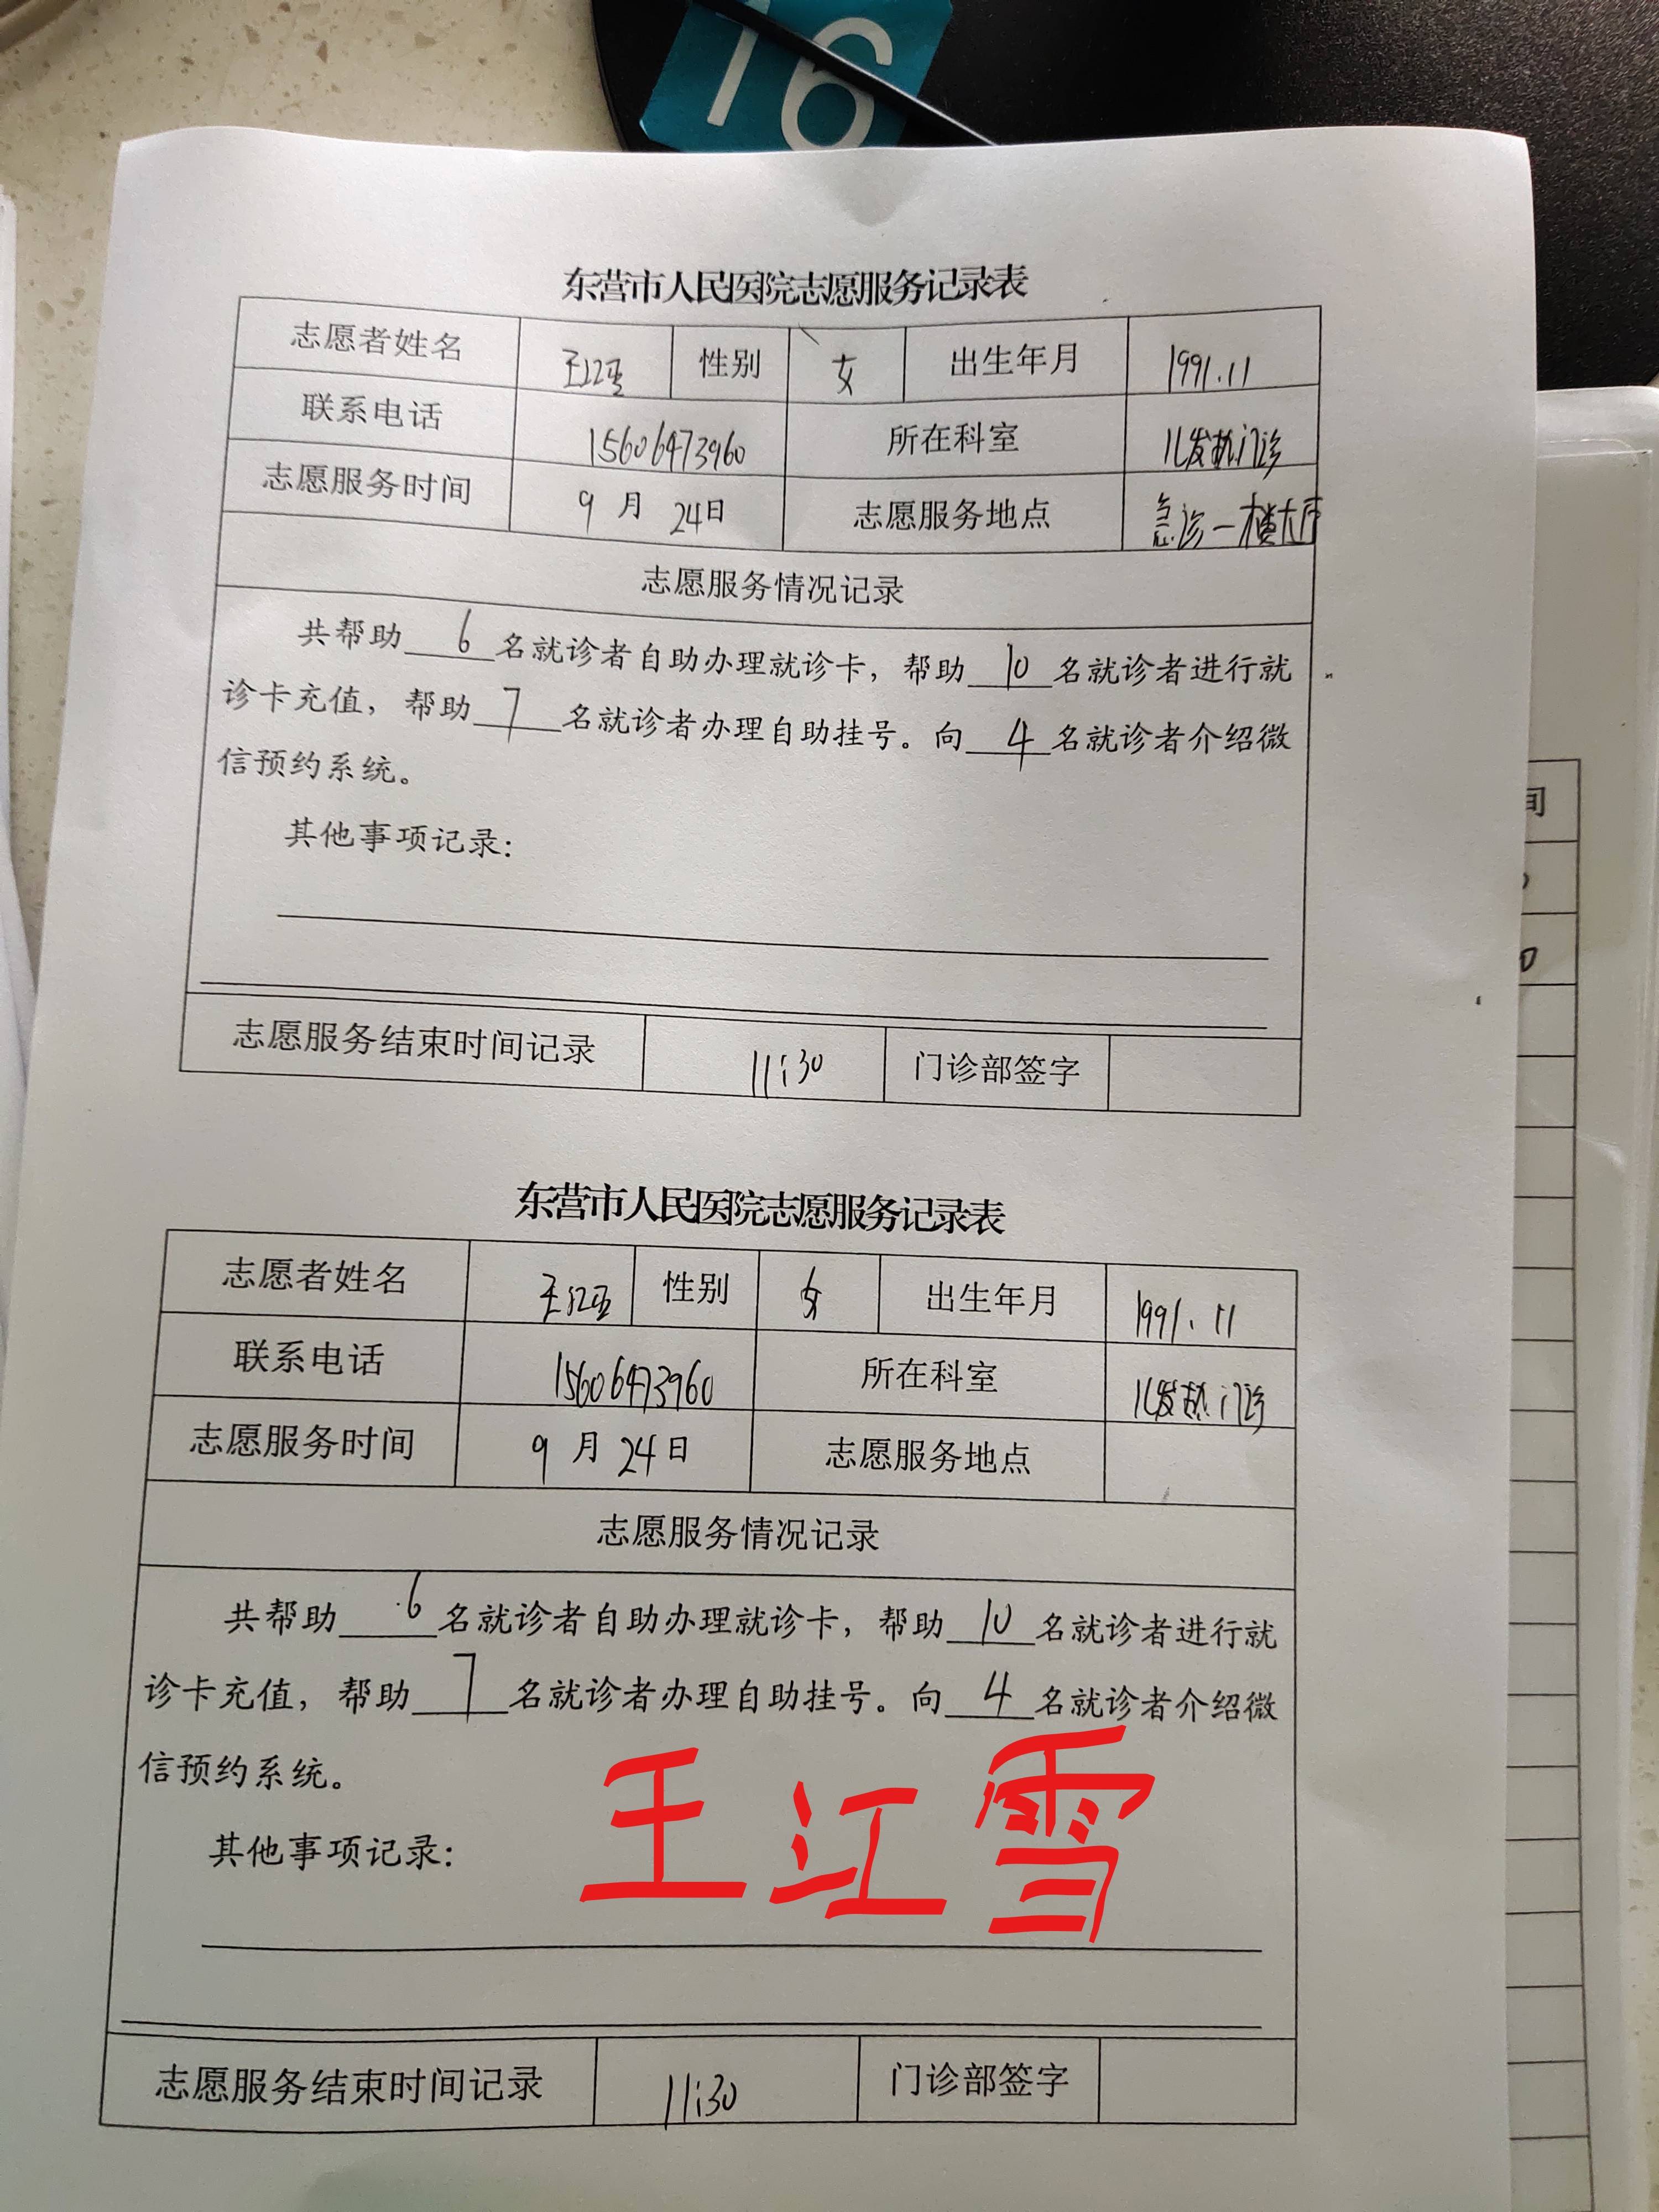 16
东营市人民医院志愿服务记录表
志愿者姓名 王江雪 性别 女 出生年月 1991.11
联系电话 15606473960 所在科室 儿发热门诊
志愿服务时间 9月24日 志愿服务地点 急诊一楼大厅
志愿服务情况记录
共帮助6名就诊者自助办理就诊卡，帮助10名就诊者进行就
诊卡充值，帮助7名就诊者办理自助挂号。向4名就诊者介绍微
信预约系统。
其他事项记录：
志愿服务结束时间记录 11:30 门诊部签字
东营市人民医院志愿服务记录表
志愿者姓名 王江雪 性别 女 出生年月 1991.11
联系电话 15606473960 所在科室 儿发热门诊
志愿服务时间 9月24日 志愿服务地点
志愿服务情况记录
共帮助6名就诊者自助办理就诊卡，帮助10名就诊者进行就
诊卡充值，帮助7名就诊者办理自助挂号。向4名就诊者介绍微
信预约系统。
王江雪
其他事项记录：
志愿服务结束时间记录 11:30 门诊部签字
间